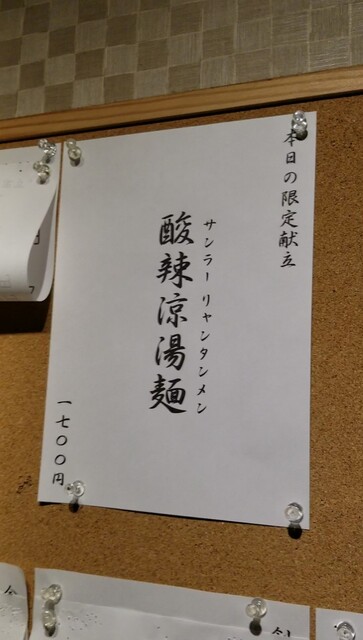 本日の限定献立
サンラー リャンタンメン
酸辣涼湯麺
一七〇〇円